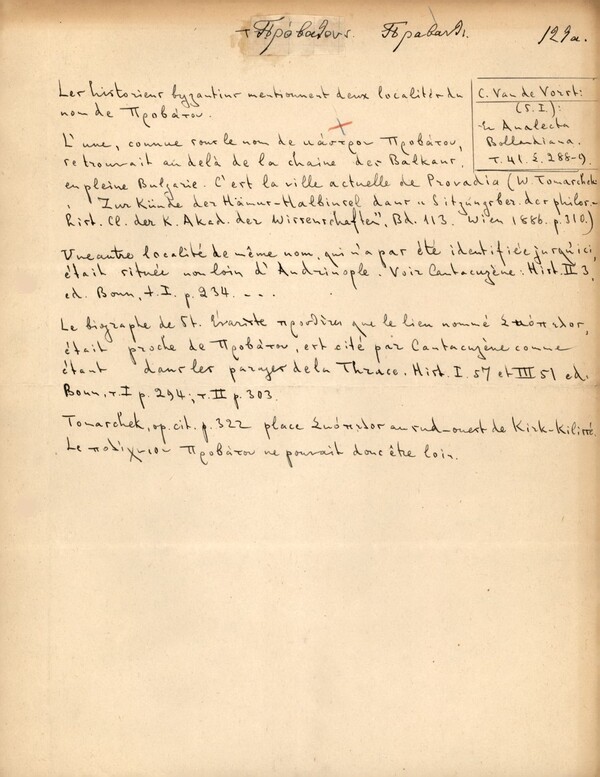 Πρόβαθους Правади. 129a.
C. Van de Vorst:
(S.I):
in Analecta
Bollandiana.
T. 41. Σ. 288-9.
Les historiens byzantins mentionnent deux localités du
nom de Προβάτου.
L'une, connue sous le nom de κάστρον Προβάτου,
se trouvait au delà de la chaine des Balkans,
en pleine Bulgarie. C'est la ville actuelle de Provadia (W. Tomaschek
Zur Künde der Hämus-Halbinsel dans "Sitzüngsber. der philos.-
Hist. Cl. der K. Akad. der Wissenschaften", Bd. 113. Wien 1886. p. 310.)
Une autre localité de même nom, qui n'a pas été identifiée jusqu'ici,
était située non loin d'Andrinople. Voir Cantacuzène: Hist. II 3,
ed. Bonn, t. I. p. 234. - - .
Le biographe de St. Évariste que le lieu nommé Σκόπελος,
était proche de Προβάτου, est cité par Cantacuzène comme
étant dans les parages de la Thrace. Hist. I. 57 et III 51 ed.
Bonn, t. I p. 294; t. II p. 303.
Tomaschek, op. cit. p. 322 place Σκόπελος au sud-ouest de Kirk-Kilissé.
Le πολίχνιον Προβάτου ne pouvait donc être loin.